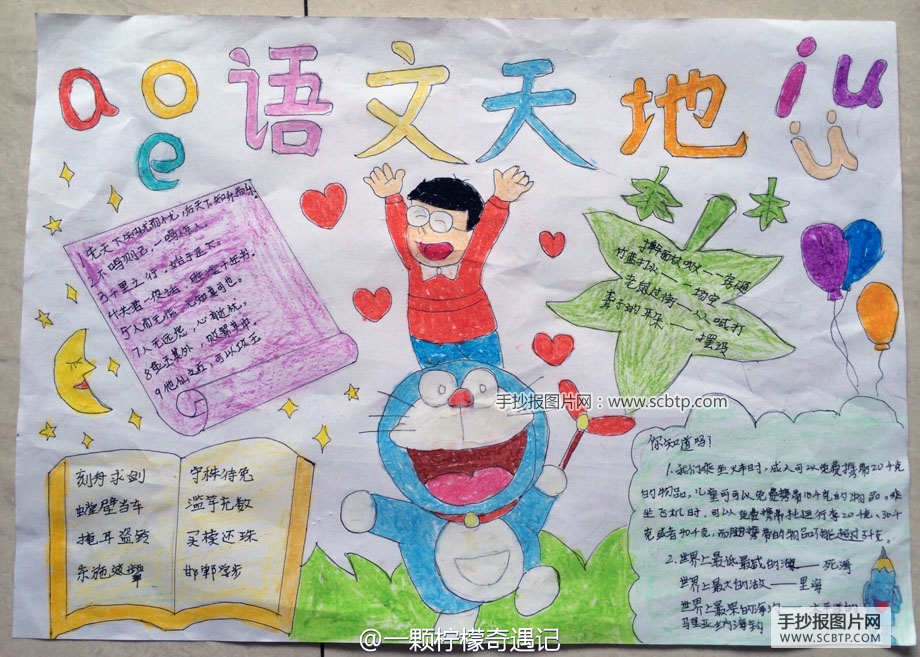 a o e 语文天地 i u ü
先天下之忧而忧,后天下之乐而乐。
不鸣则己,一鸣惊人。
3千里之行,始于足下。
8金玉其外,败絮其中
9他山之石,可以攻玉
刻舟求剑
螳螂臂当车
掩耳盗铃
东施效颦
守株待兔
滥竽充数
买椟还珠
邯郸学步
擀面杖吹火——一窍不通
竹篮打水——一场空
老鼠过街——人人喊打
聋子的耳朵——摆设
手抄报图片网：www.scbtp.com
你知道吗?
1.我们乘坐火车时,成人可以免费携带20千克
的物品,儿童可以免费携带10千克的物品。乘
坐飞机时,可以免费携带托运行李20千克、30千
克或者40千克,而随身携带的物品不能超过5千克。
2.世界上最低最咸的湖——死海
世界上最大的湖——里海
世界上最深的海沟——
马里亚纳海沟
手抄报图片网
WWW.SCBTP.COM
@一颗柠檬奇遇记